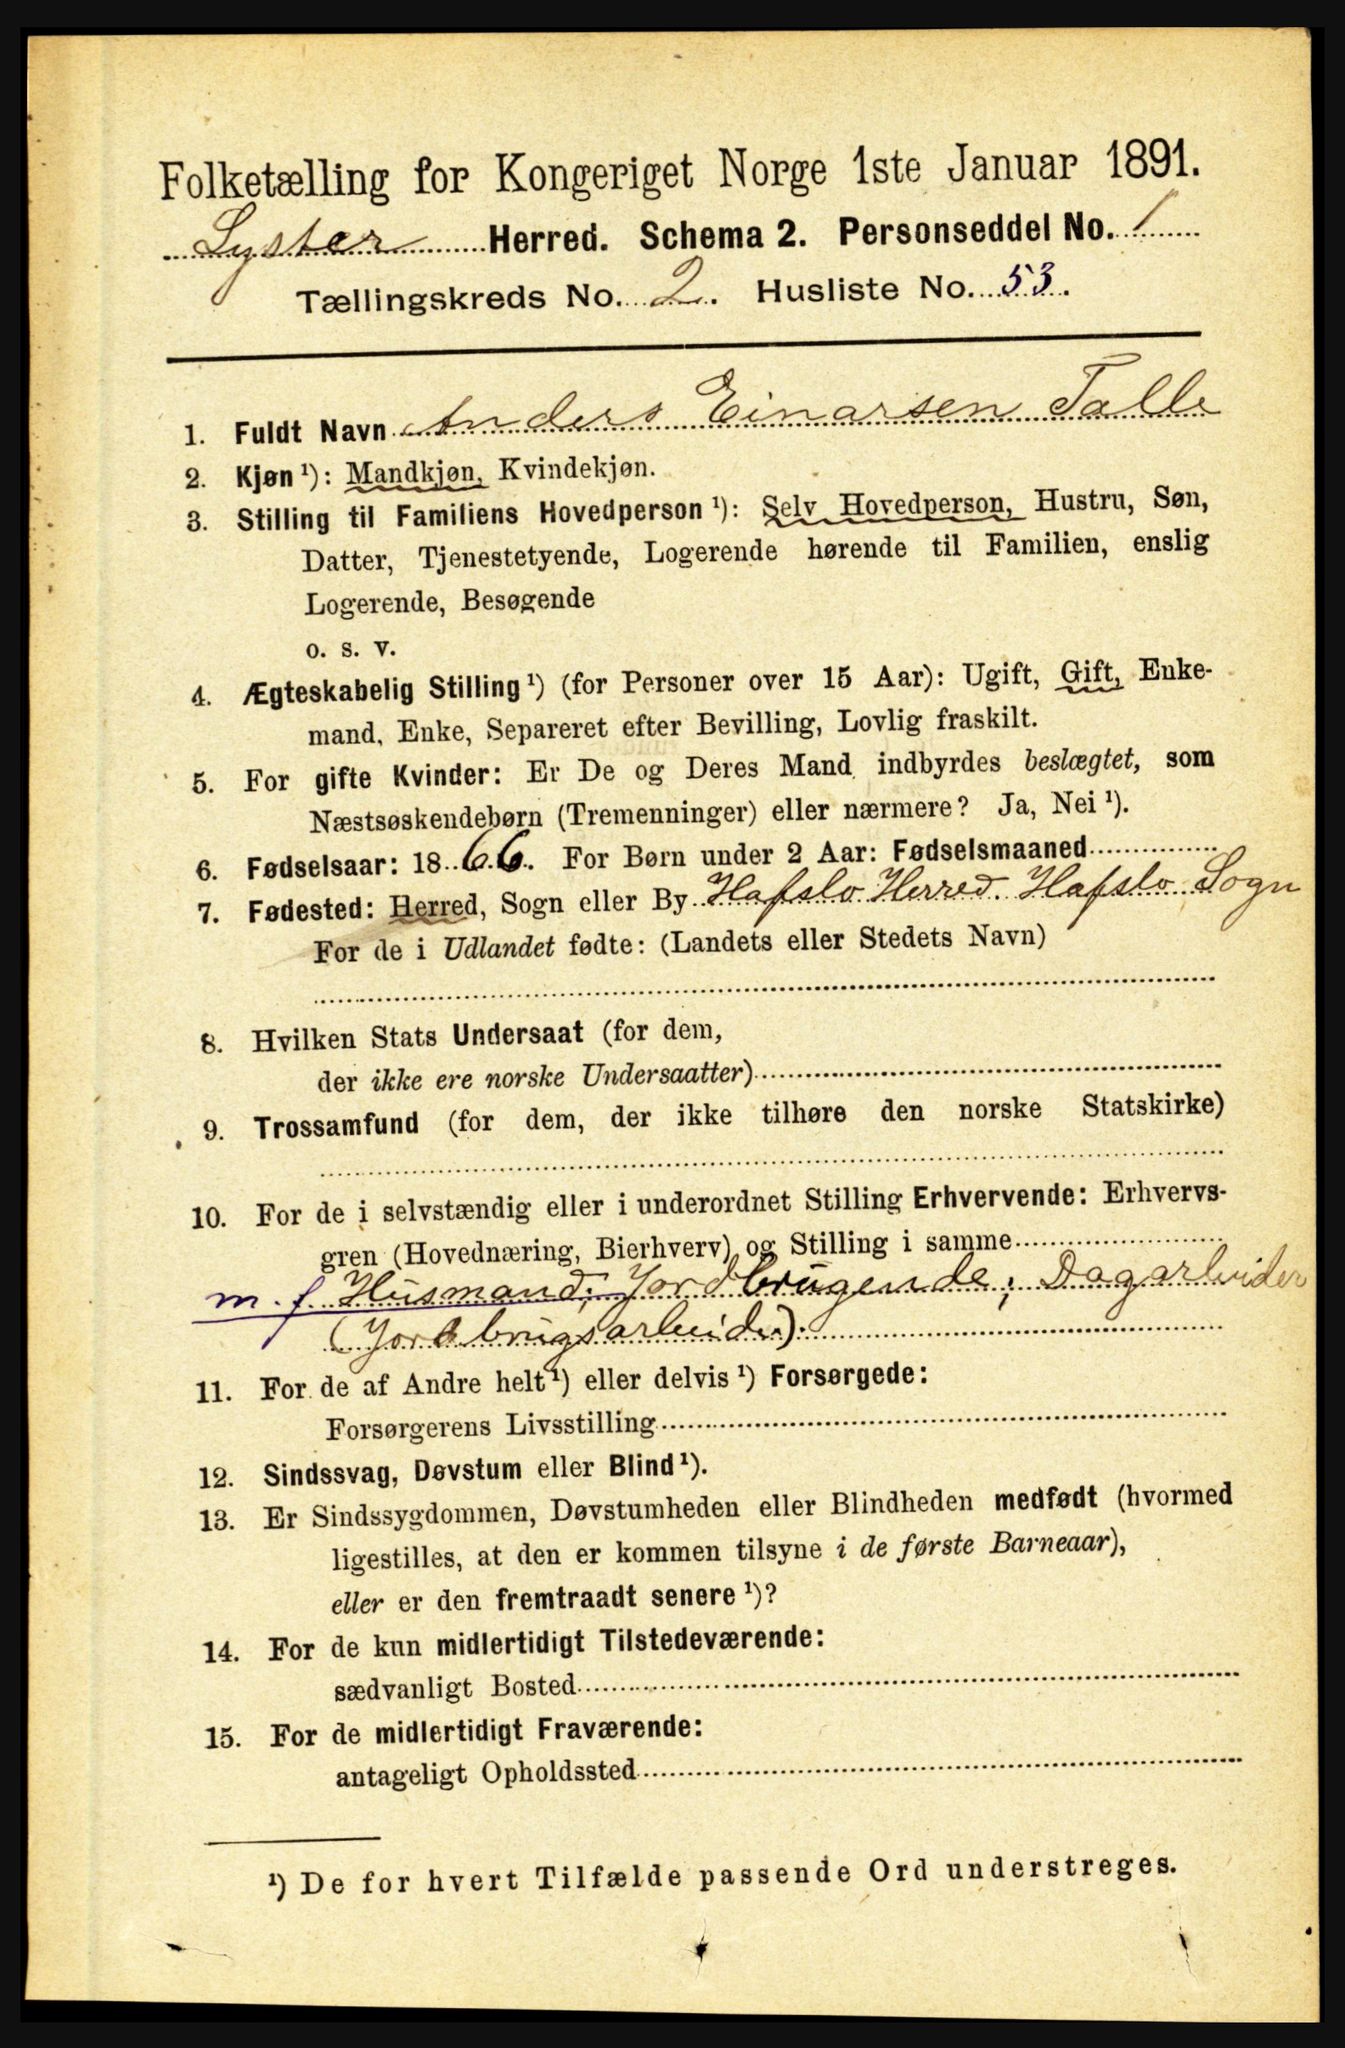 Folketælling for Kongeriget Norge 1ste Januar 1891.
Lyster Herred. Schema 2. Personseddel No. 1
Tællingskreds No. 2. Husliste No. 53.
1. Fuldt Navn Anders Einarsen Talle
2. Kjøn ¹): Mandkjøn, Kvindekjøn.
3. Stilling til Familiens Hovedperson ¹): Selv Hovedperson, Hustru, Søn,
Datter, Tjenestetyende, Logerende hørende til Familien, enslig
Logerende, Besøgende
o. s. v.
4. Ægteskabelig Stilling ¹) (for Personer over 15 Aar): Ugift, Gift, Enke-
mand, Enke, Separeret efter Bevilling, Lovlig fraskilt.
5. For gifte Kvinder: Er De og Deres Mand indbyrdes beslægtet, som
Næstsøskendebørn (Tremenninger) eller nærmere? Ja, Nei ¹).
6. Fødselsaar: 1866. For Børn under 2 Aar: Fødselsmaaned
7. Fødested: Herred, Sogn eller By Hafslo Herred. Hafslo Sogn
For de i Udlandet fødte: (Landets eller Stedets Navn)
8. Hvilken Stats Undersaat (for dem,
der ikke ere norske Undersaatter)
9. Trossamfund (for dem, der ikke tilhøre den norske Statskirke)
10. For de i selvstændig eller i underordnet Stilling Erhvervende: Erhvervs-
gren (Hovednæring, Bierhverv) og Stilling i samme
m. f Husmand, Jordbrugende, Dagarbeider
(Jordbrugsarbeide).
11. For de af Andre helt ¹) eller delvis ¹) Forsørgede:
Forsørgerens Livsstilling
12. Sindssvag, Døvstum eller Blind ¹).
13. Er Sindssygdommen, Døvstumheden eller Blindheden medfødt (hvormed
ligestilles, at den er kommen tilsyne i de første Barneaar),
eller er den fremtraadt senere ¹)?
14. For de kun midlertidigt Tilstedeværende:
sædvanligt Bosted
15. For de midlertidigt Fraværende:
antageligt Opholdssted
¹) De for hvert Tilfælde passende Ord understreges.